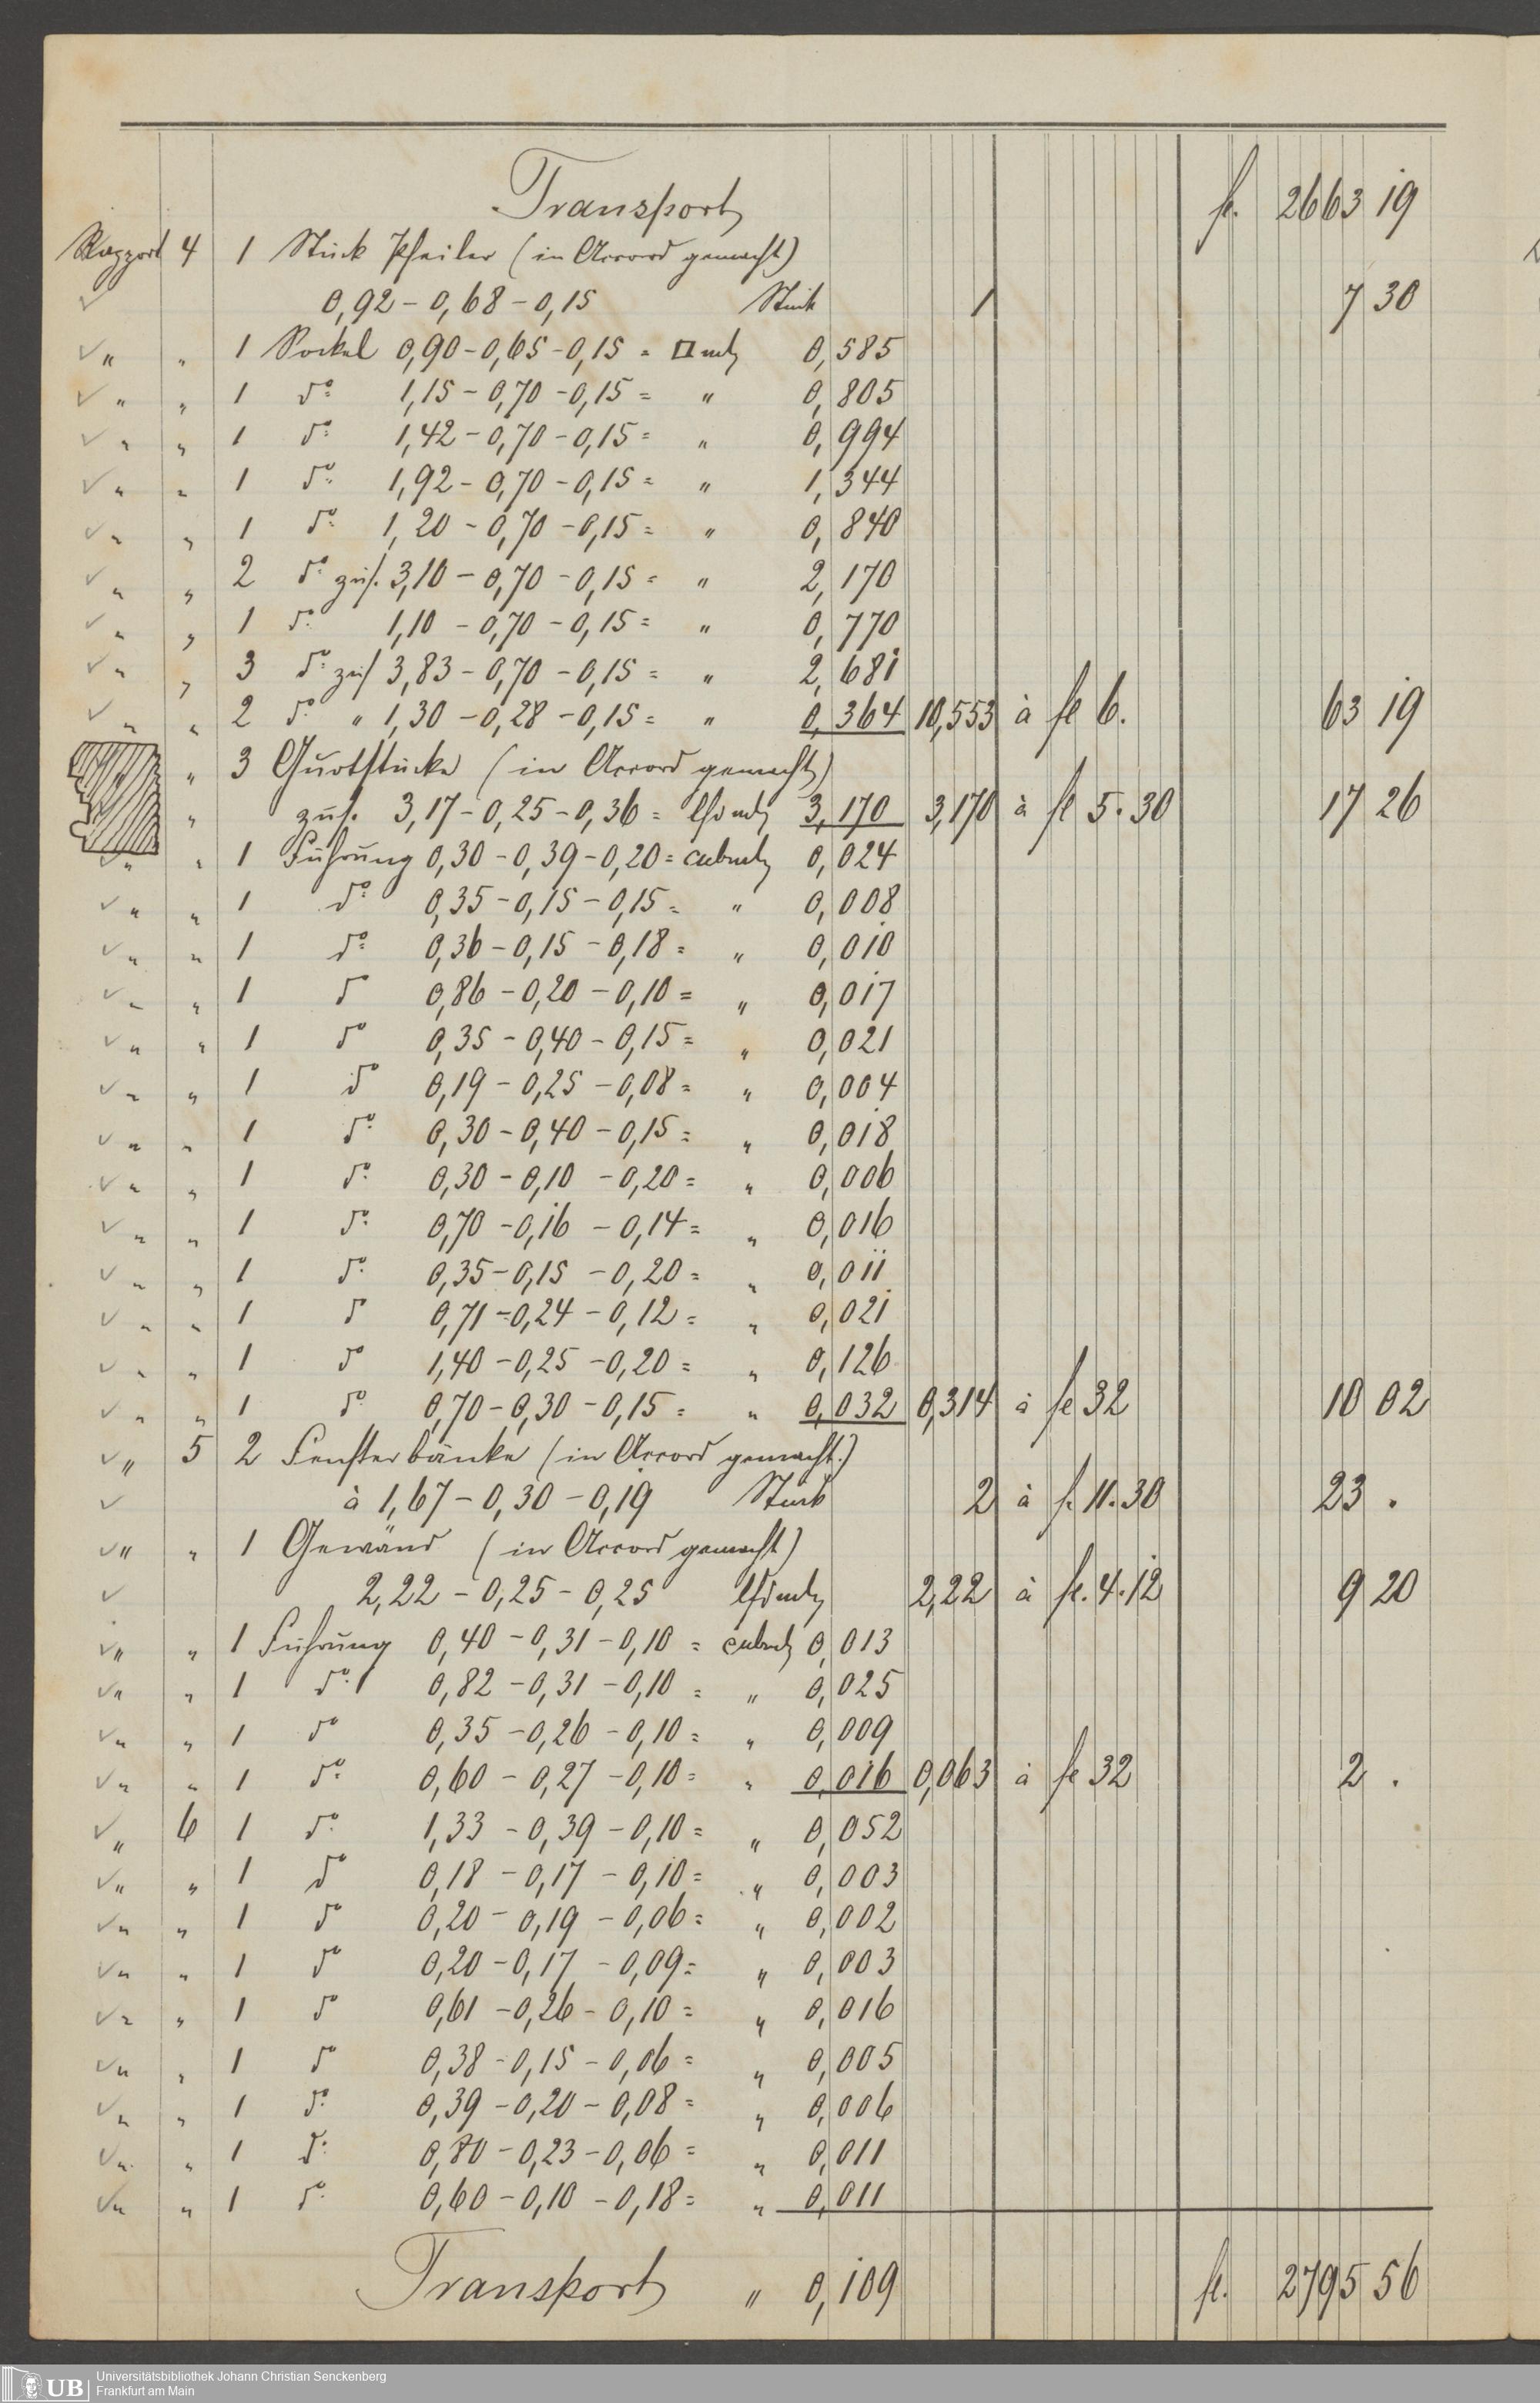 Transport fl. 2663 19
Rapport 4 1 Stück Pfeiler (in Accord gemacht)
0,92 - 0,68 - 0,15 Stück 1 7 30
" " 1 Sockel 0,90 - 0,65 - 0,15 = □ mtr 0,585
" " 1 do 1,15 - 0,70 - 0,15 = " 0,805
" " 1 do 1,42 - 0,70 - 0,15 = " 0,994
" " 1 do 1,92 - 0,70 - 0,15 = " 1,344
" " 1 do 1,20 - 0,70 - 0,15 = " 0,840
" " 2 do zus. 3,10 - 0,70 - 0,15 = " 2,170
" " 1 do 1,10 - 0,70 - 0,15 = " 0,770
" " 3 do zus 3,83 - 0,70 - 0,15 = " 2,681
" " 2 do " 1,30 - 0,28 - 0,15 = " 0,364 10,553 à fl 6. 63 19
" 3 Gurtstücke (in Accord gemacht)
" zus. 3,17 - 0,25 - 0,36 = lfdmtr 3,170 3,170 à fl 5.30 17 26
" " 1 Führung 0,30 - 0,39 - 0,20 = cubmtr 0,024
" " 1 do 0,35 - 0,15 - 0,15 = " 0,008
" " 1 do 0,36 - 0,15 - 0,18 = " 0,010
" " 1 do 0,86 - 0,20 - 0,10 = " 0,017
" " 1 do 0,35 - 0,40 - 0,15 = " 0,021
" " 1 do 0,19 - 0,25 - 0,08 = " 0,004
" " 1 do 0,30 - 0,40 - 0,15 = " 0,018
" " 1 do 0,30 - 0,10 - 0,20 = " 0,006
" " 1 do 0,70 - 0,16 - 0,14 = " 0,016
" " 1 do 0,35 - 0,15 - 0,20 = " 0,011
" " 1 do 0,71 - 0,24 - 0,12 = " 0,021
" " 1 do 1,40 - 0,25 - 0,20 = " 0,126
" " 1 do 0,70 - 0,30 - 0,15 = " 0,032 0,314 à fl 32 10 02
" 5 2 Fensterbänke (in Accord gemacht.)
à 1,67 - 0,30 - 0,19 Stück 2 à fl. 11.30 23 .
" " 1 Gewänd (in Accord gemacht)
2,22 - 0,25 - 0,25 lfdmtr 2,22 à fl. 4.12 9 20
" " 1 Führung 0,40 - 0,31 - 0,10 = cubmtr 0,013
" " 1 do 0,82 - 0,31 - 0,10 = " 0,025
" " 1 do 0,35 - 0,26 - 0,10 = " 0,009
" " 1 do 0,60 - 0,27 - 0,10 = " 0,016 0,063 à fl 32 2 .
" 6 1 do 1,33 - 0,39 - 0,10 = " 0,052
" " 1 do 0,18 - 0,17 - 0,10 = " 0,003
" " 1 do 0,20 - 0,19 - 0,06 = " 0,002
" " 1 do 0,20 - 0,17 - 0,09 = " 0,003
" " 1 do 0,61 - 0,26 - 0,10 = " 0,016
" " 1 do 0,38 - 0,15 - 0,06 = " 0,005
" " 1 do 0,39 - 0,20 - 0,08 = " 0,006
" " 1 do 0,80 - 0,23 - 0,06 = " 0,011
" " 1 do 0,60 - 0,10 - 0,18 = " 0,011
Transport " 0,109 fl. 2795 56
UB Universitätsbibliothek Johann Christian Senckenberg
Frankfurt am Main